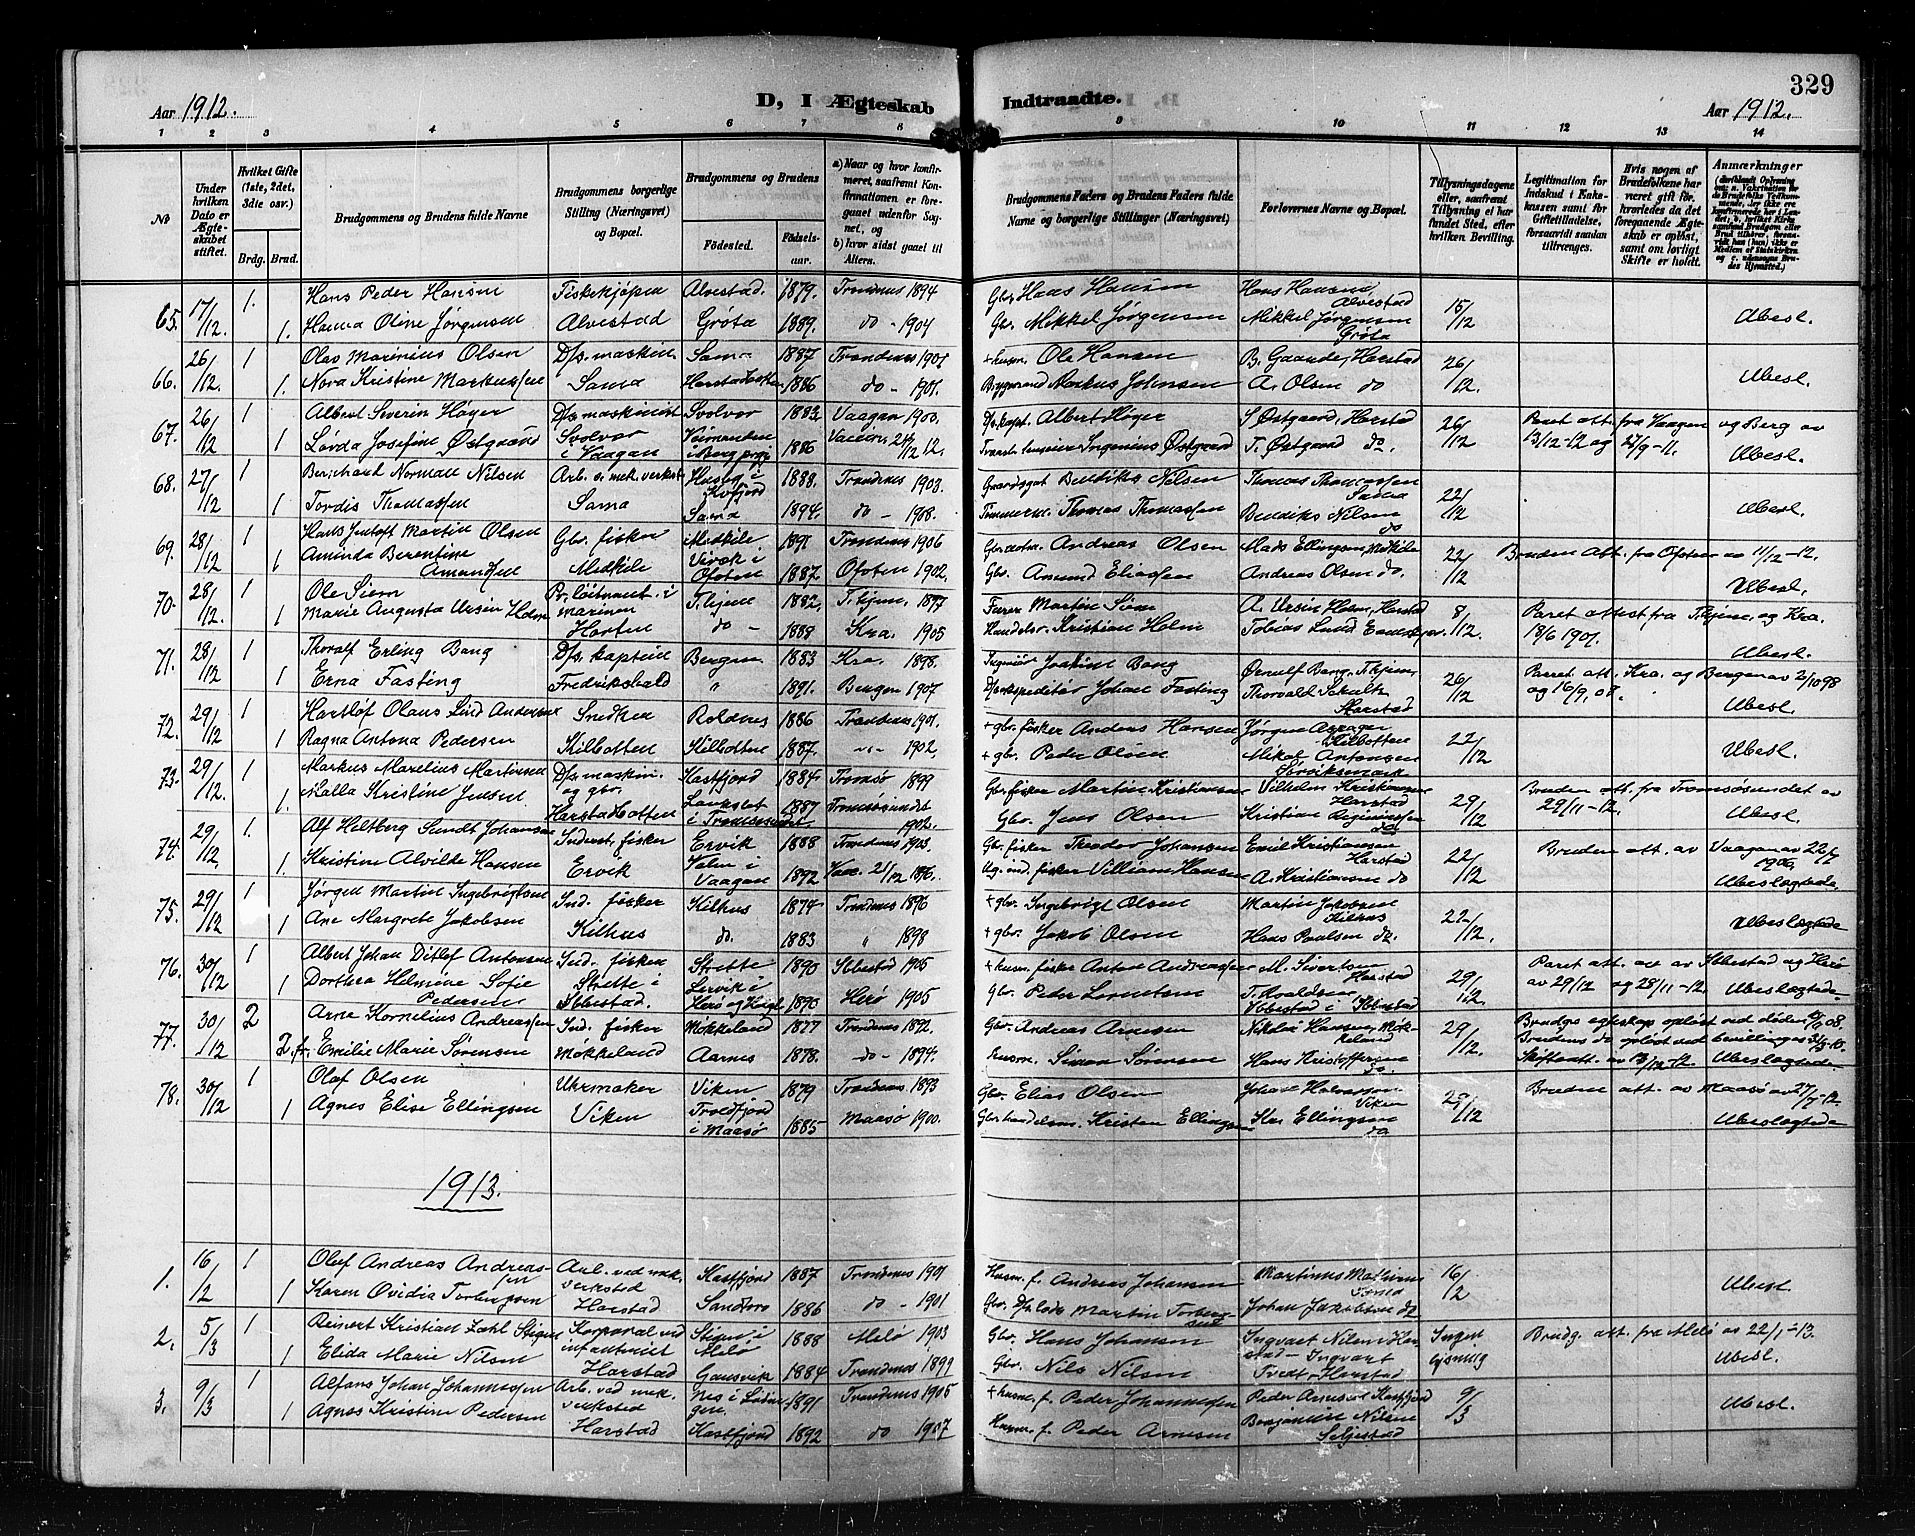 329
Aar 1912. D, I Ægteskab Indtraadte. Aar 1912.
1 2 3 4 5 6 7 8 9 10 11 12 13 14
No
Under hvilken Dato er Ægteskabet stiftet.
Hvilket Gifte (1ste, 2det, 3die osv.)
Brdg. Brud.
Brudgommens og Brudens fulde Navne
Brudgommens borgerlige Stilling (Næringsvei) og Bopæl.
Brudgommens og Brudens
Fødested. Fødselsaar.
a) Naar og hvor konfirmeret, saafremt Konfirmationen er foregaaet udenfor Sognet, og
b) hvor sidst gaaet til Alters.
Brudgommens Faders og Brudens Faders fulde Navne og borgerlige Stillinger (Næringsvei)
Forlovernes Navne og Bopæl.
Tillysningsdagene eller, saafremt Tillysning ei har fundet Sted, efter hvilken Bevilling.
Legitimation for Indskud i Enkekassen samt for Giftetilladelse, forsaavidt saadan tiltrænges.
Hvis nogen af Brudefolkene har været gift før, hvorledes da det foregaaende Ægteskab er opløst, samt om lovligt Skifte er holdt.
Anmærkninger
65. 17/12. 1. Hans Peder Hansen Fiskekjøper Alvestad. 1879. Trondenes 1894 Gbr. Hans Hansen Hans Hansen, Alvestad 15/12
1. Hanna Oline Jørgensen Alvestad Grøta 1889. do - 1904 Gbr. Mikkel Jørgensen Mikkel Jørgensen Grøta Ubesl.
66. 26/12. 1 Olas Marinius Olsen Ds. maskin. Sama 1887 Trondenes 1901 + husm. Ole Hansen B. Gaarde, Harstad 26/12.
1. Nora Kristine Markussen Sama 1886 do - 1901. Brygmand Markus Johnsen A. Olsen do Ubesl.
67. 26/12 1 Albert Severin Høyer Ds. maskinist Svolvær 1883 Vaagan 1900. Albert Høyer S. Østgaard, Harstad 26/12 Paret att. fra Vaagen og Berg av
1 Josefine Østgaard Svolvær i Vaagan 1886 Ingenius Østgaard T. Østgaard do. 13/12-12 og 27/9-11. Ubesl.
68. 27/12 1 Bernhard Norman Nilsen Arb. v. mek. verkst. Husby i Kvæfjord 1888. Trondenes 1903. Gaardsgut Bendiks Nilsen Thomas Thomassen Sama 22/12
1 Tordis Thomassen Sama Sama 1894. do - 1908. Tømmerm. Thomas Thomassen Bendiks Nilsen do Ubesl.
69. 28/12 1 Hans Martin Olsen Gbr. fisker Medkile 1891 Trondenes 1906 Andreas Olsen Mads Ellingsen, Medkile 22/12 Bruden att. fra Ofoten av 11/12-12.
1 Aminda Berentine Amundsen Medkile Ofoten 1887 Ofoten 1902. Gbr. Amund Eliassen Andreas Olsen do. Ubesl.
70. 28/12. 1 Ole Siem Pr. løitnant i marinen T.hjem 1882. T.hjem. 1897 Martin Siem A. Ursin Holm, Harstad 8/12. Paret attest fra T.hjem og Kra.
1 Marie Augusta Ursin Holm Horten do - 1888 Kra. 1905 Handelsm. Kristian Holm Tobias Lund 18/6 1907. Ubesl.
71. 28/12 1 Thoralf Erling Bang Ds. kaptein Bergen 1883 Kra. 1898. Ingeniør Joakim Bang Ørnulf Bang, T.hjem, 26/12 Paret att. Kra. og Bergen av 2/10 98
1 Erna Fasting Fredrikshald " 1891. Bergen 1907 Johan Fasting Thorvald Schulz Harstad og 16/9. 08. Ubesl.
72. 29/12 1 Hartlof Olaus Lind Andersen Snedker Roldnes 1886 Trondenes 1901. + gbr. fisker Anders Hansen Jørgen Kilbotten 22/12
1 Ragna Antona Pedersen Kilbotten Kilbotten 1887. -"- 1902. + gbr. Peder Olsen Mikal Antonsen Sørviksmark Ubesl.
73. 29/12. 1 Markus Marelius Martinsen Ds. maskin. og gbr. Kastfjord 1884. Tromsø 1899 Gbr. fisker Martin Kristiansen Vilhelm Kristiansen Harstad 29/12 Bruden att. fra Tromsøsundet av
1. Malla Kristine Jensen Harstadbotten i Tromsøsundet 1887 Tromsøsundet 1902. Gbr. Jens Olsen Kristian do 29/11-12. Ubesl.
74. 29/12. 1. Alf Heltberg Sundt Johansen Indv. fisker Ervik 1888 Trondenes 1903. Gbr. fisker Theodor Johansen Emil Kristiansen Harstad 22/12 Bruden att. av Vaagan av 22/7
1. Kristine Alvilde Hansen Ervik Vaagan 1892 fisker Villiam Hansen A. Kristiansen do 1909. Ubeslægtede
75. 29/12 1 Jørgen Martin Ingebrigtsen Ind. fisker Kilhus 1874 Trondenes 1896 + gbr. Ingebrigt Olsen Martin Jakobsen Kilhus 22/12.
1 Ane Margrete Jakobsen Kilhus do. 1883 " 1898 + gbr. Jakob Olsen Hans Paulsen do. Ubeslægtede
76. 30/12 1 Albert Johan Ditlef Antonsen Ind. fisker Strette 1890 Ibbestad 1905 + husm. fisker Anton Andreassen M. Sivertsen Harstad 29/12 Paret att. av Ibbestad og Herø
1 Dorthea Helmine Sofie Pedersen Strette i Ibbestad. Lervik i Herø 1890 Herø 1905 Gbr. Peder Lorentsen T. Roaldsen Ibbestad i Ibbestad av 29/12 og 28/11-12. Ubeslægtede
77. 30/12 2 Arne Kornelius Andreassen Ind. fisker Møkkeland 1877 Trondenes 1892. Gbr. Andreas Arnesen Nikolai Hansen, Møkkeland 29/12. Brudgs egteskap opløst ved døden 08
2. fr. Emilie Marie Sørensen Møkkeland Aarnes 1878. do - 1894. husm. Simon Sørensen Hans Kristoffersen do. Brudens do opløst ved bevilling
Skifteatt. av 13/12-12. Ubeslægtede
78. 30/12 1 Olaf Olsen Uhrmaker Viken 1879 Trondenes 1893 Gbr. Elias Olsen Johan Halvorsen Viken 29/12 Bruden att. av Maasø av 27/7-12.
1 Agnes Elise Ellingsen Viken Troldfjord i Maasø 1885 Maasø 1900. Kristen Ellingsen Ellingsen do Ubeslægtede
1913.
1. 16/2 1 Oluf Andreas Andreassen Arb. ved mek. verksted Kastfjord 1887 Trondenes 1901 Husm. f. Andreas Johansen Martinus Mathisen 16/2
1 Karen Ovidia Torbergsen Harstad Sandtorv 1886 do - 1901 Martin Torbergsen Johan Jakobsen do Ubesl.
2. 5/3 1 Reinert Kristian Zahl Stigen Korporal ved infanteriet Stigen i Melø 1888 Melø 1903 Gbr. Hans Johansen Ingvart Nilsen Harstad - Ingen lysning Brudg. att. fra Melø av 22/1-13.
1 Elida Marie Nilsen Harstad Gausvik 1884 Trondenes 1899 Gbr. Nils Nilsen Ingvart Tvedt - Harstad Ubesl.
3. 9/3 1 Alfons Johan Johannessen Arb. ved mek. verksted Nes i Lødingen. 1891 Trondenes 1905 + husm. f. Peder Johannessen Peder Arnesen Kastfjord 9/3
1 Agnes Kristine Pedersen Harstad Kastfjord 1892 do 1907 Husm. f. Peder Arnesen Benjamin Nilsen Seljestad Ubesl.